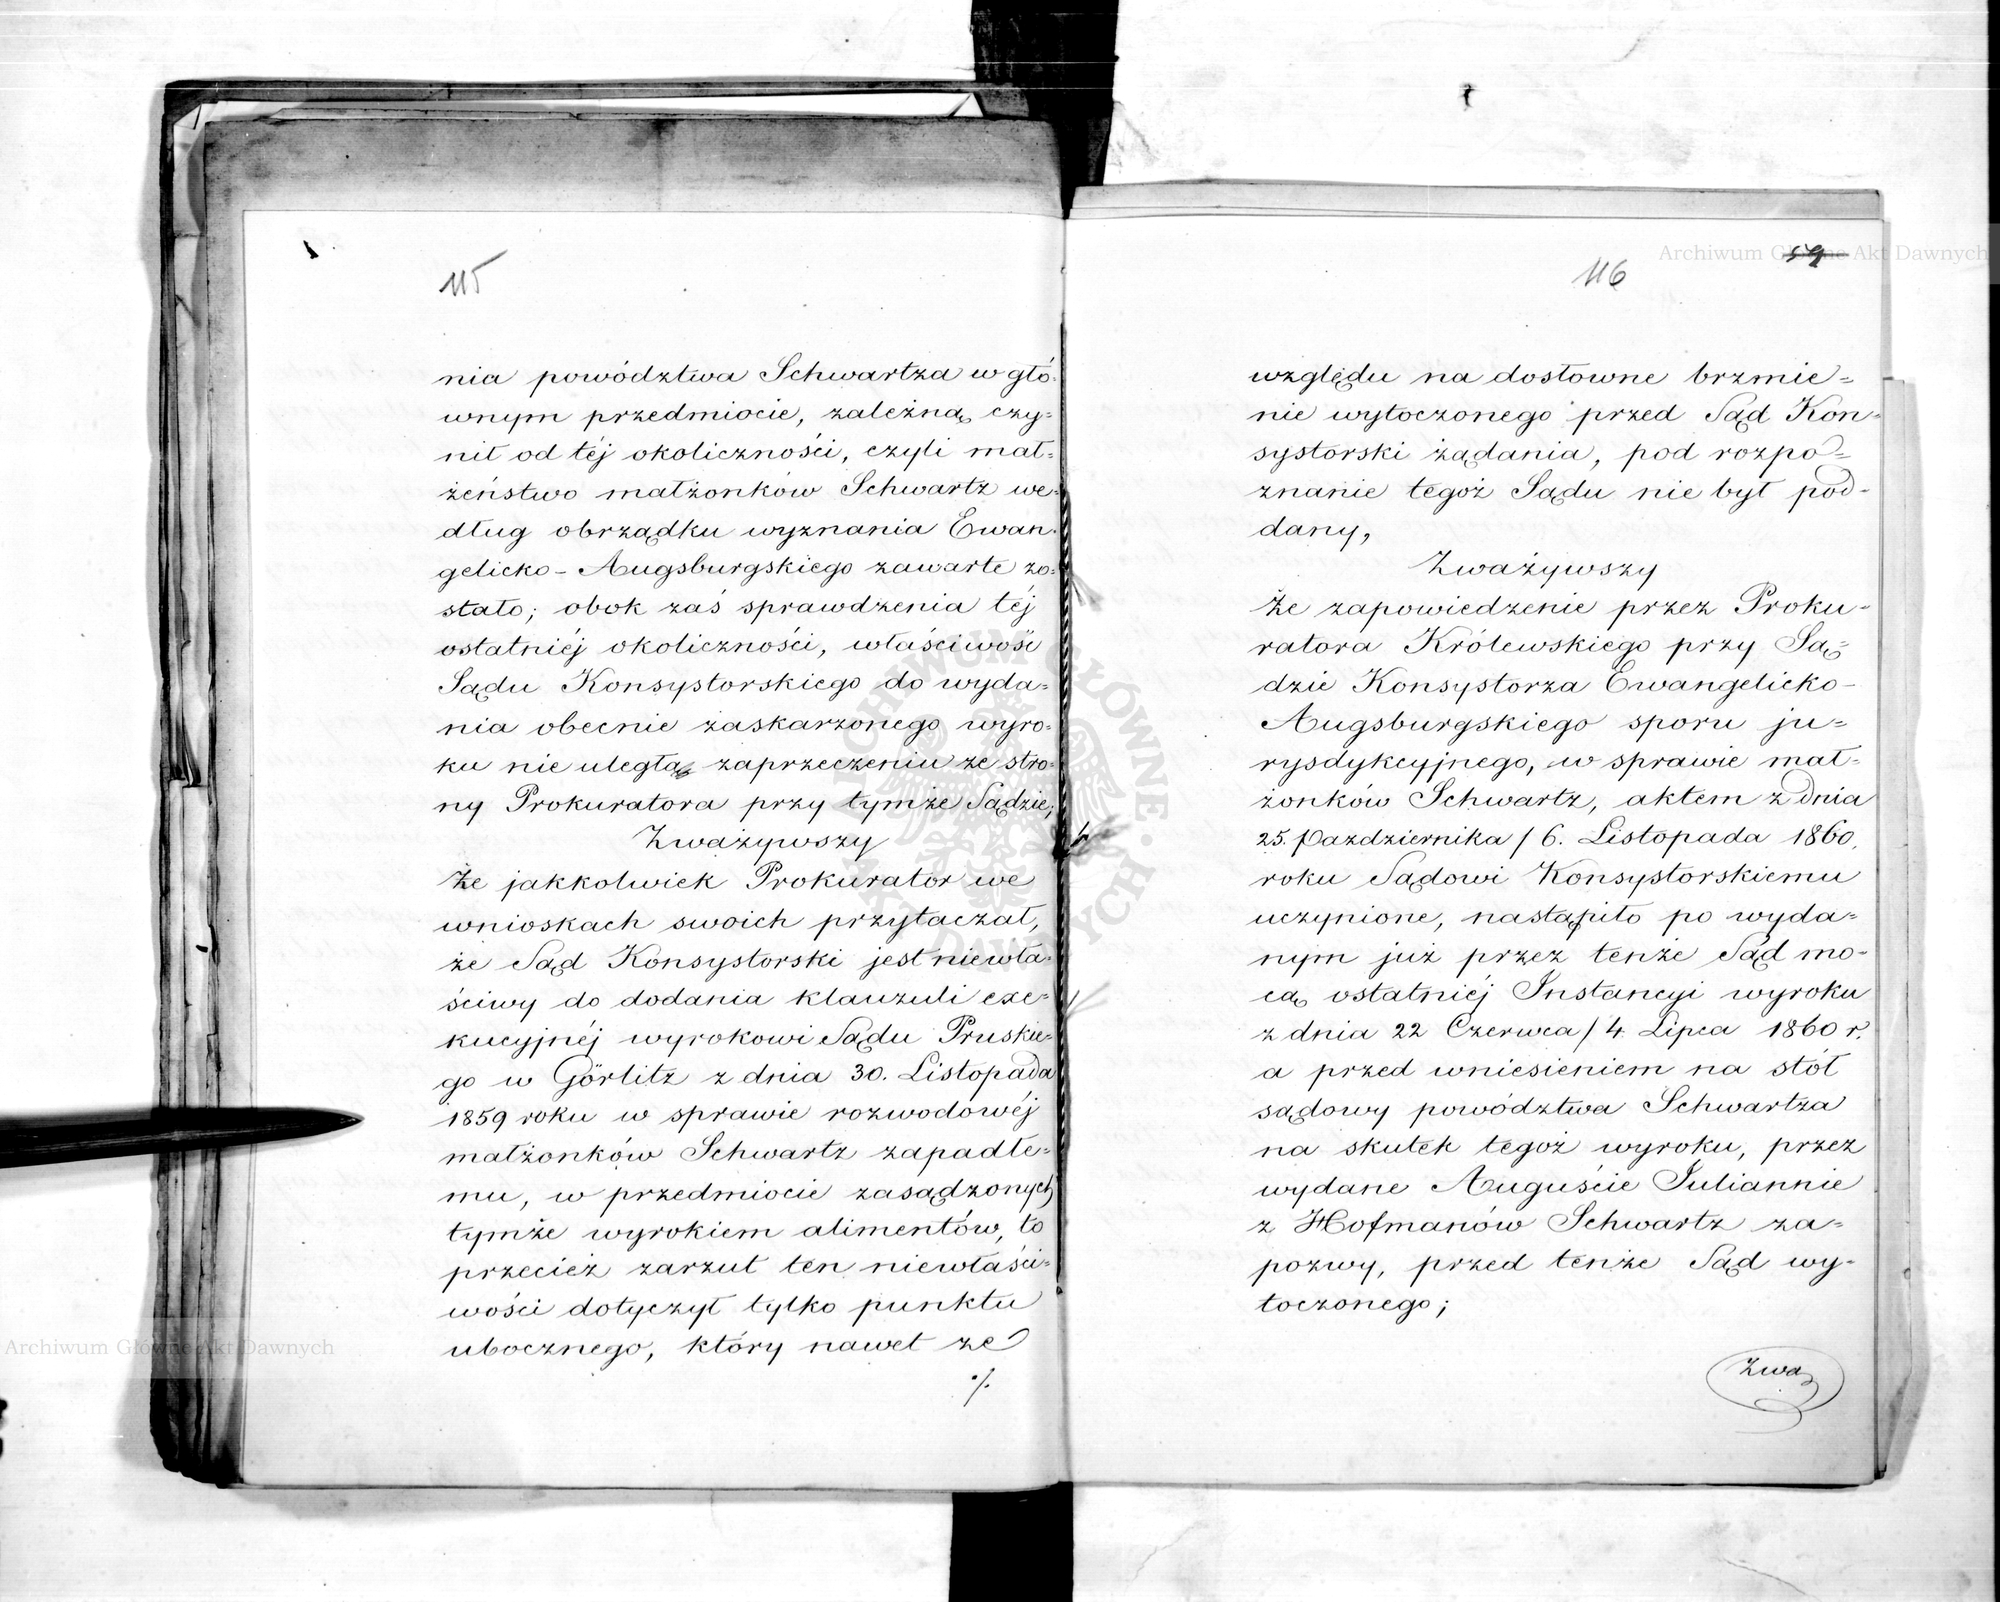 115
nia powództwa Schwartza w głó-
wnym przedmiocie, zależną czy-
nił od téj okoliczności, czyli mał-
żeństwo małżonków Schwartz we-
dług obrządku wyznania Ewan-
gelicko-Augsburgskiego zawarte zo-
stało; obok zaś sprawdzenia téj
ostatniéj okoliczności, właściwość
Sądu Konsystorskiego do wyda-
nia obecnie zaskarzonego wyro-
ku nie uległa zaprzeczeniu ze stro-
ny Prokuratora przy tymże Sądzie;
Zważywszy
Że jakkolwiek Prokurator we
wnioskach swoich przytaczał,
że Sąd Konsystorski jest niewła-
ściwy do dodania klauzuli exe-
kucyjnéj wyrokowi Sądu Pruskie-
go w Görlitz z dnia 30. Listopada
1859 roku w sprawie rozwodowéj
małżonków Schwartz zapadłe-
mu, w przedmiocie zasądzonych
tymże wyrokiem alimentów, to
przecież zarzut ten niewłaści-
wości dotyczył tylko punktu
ubocznego, który nawet ze
./.
59
116
względu na dosłowne brzmie-
nie wytoczonego przed Sąd Kon-
systorski żądania, pod rozpo-
znanie tegoż Sądu nie był pod-
dany,
Zważywszy
Że zapowiedzenie przez Proku-
ratora Królewskiego przy Są-
dzie Konsystorza Ewangelicko-
Augsburgskiego sporu ju-
rysdykcyjnego, w sprawie mał-
żonków Schwartz, aktem z dnia
25. Października / 6. Listopada 1860.
roku Sądowi Konsystorskiemu
uczynione, nastąpiło po wyda-
nym już przez tenże Sąd mo-
cą ostatniéj Instancyi wyroku
z dnia 22 Czerwca / 4 Lipca 1860 r.
a przed wniesieniem na stół
sądowy powództwa Schwartza
na skutek tegoż wyroku, przez
wydane Auguście Juliannie
z Hofmanów Schwartz za-
pozwy, przed tenże Sąd wy-
toczonego;
Zwa
Archiwum Główne Akt Dawnych
Archiwum Główne Akt Dawnych